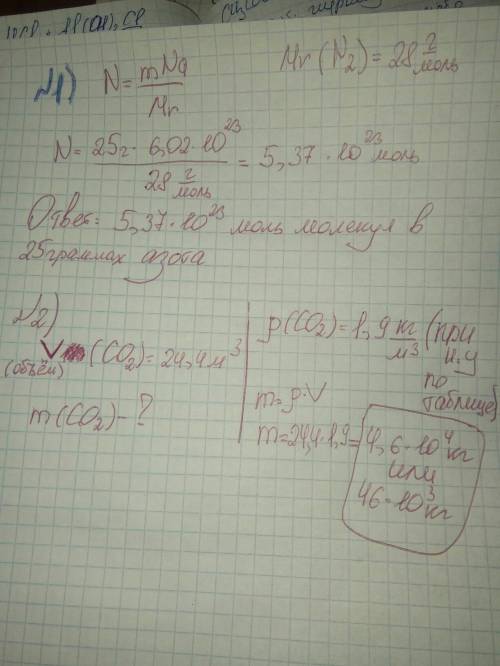 №1) N = mNa / Mr
Mr (N₂) = 28 г/моль
N = 25г · 6,02 · 10²³ / 28 г/моль = 5,37 · 10²³ моль
Ответ: 5,37 · 10²³ моль молекул в
25 граммах азота
№2)
V (CO₂) = 24,4 м³
(объём)
m (CO₂) - ?
ρ(CO₂) = 1,9 кг/м³ (при
н.у
по
таблице)
m = ρ · V
m = 24,4 · 1,9 = 4,6 · 10⁴ кг
или
46 · 10³ кг